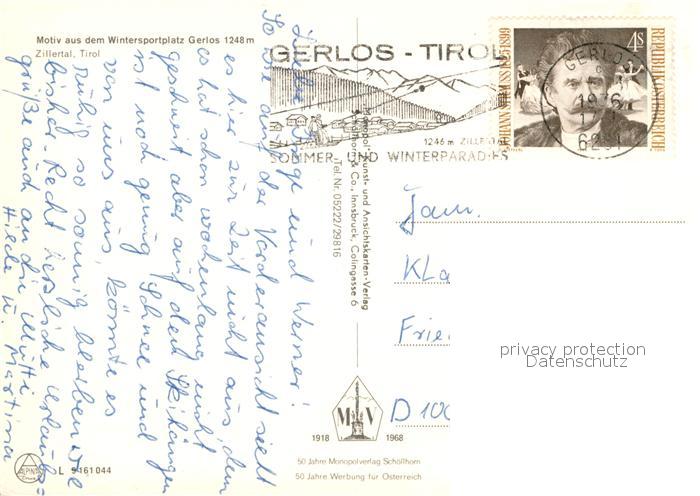 Motiv aus dem Wintersportplatz Gerlos 1248 m
Zillertal, Tirol
GERLOS - TIROL
1246 m ZILLERTAL
SOMMER- UND WINTERPARADIES
GERLOS
1976
6281
4S
REPUBLIK ÖSTERREICH
Liebe und Werner!
So wie auf der Vorderansicht sieht
es hier zur Zeit nicht aus, denn
es hat schon wochenlang nicht
geschneit aber auf den Skihängen
ist noch genug Schnee und
von uns aus, könnte es
ruhig so sonnig bleiben wie
bisher. Recht herzliche Urlaubs=
grüße auch an die Mutti
Hilde u. Martina
Monopol-Kunst- und Ansichtskarten-Verlag
Schöllhorn & Co., Innsbruck, Colingasse 6
Tel. Nr. 05222/29816
Fam.
Kla
Frie
D 100
privacy protection
Datenschutz
M V
1918 1968
50 Jahre Monopolverlag Schöllhorn
50 Jahre Werbung für Österreich
ALPINA
L 9161044